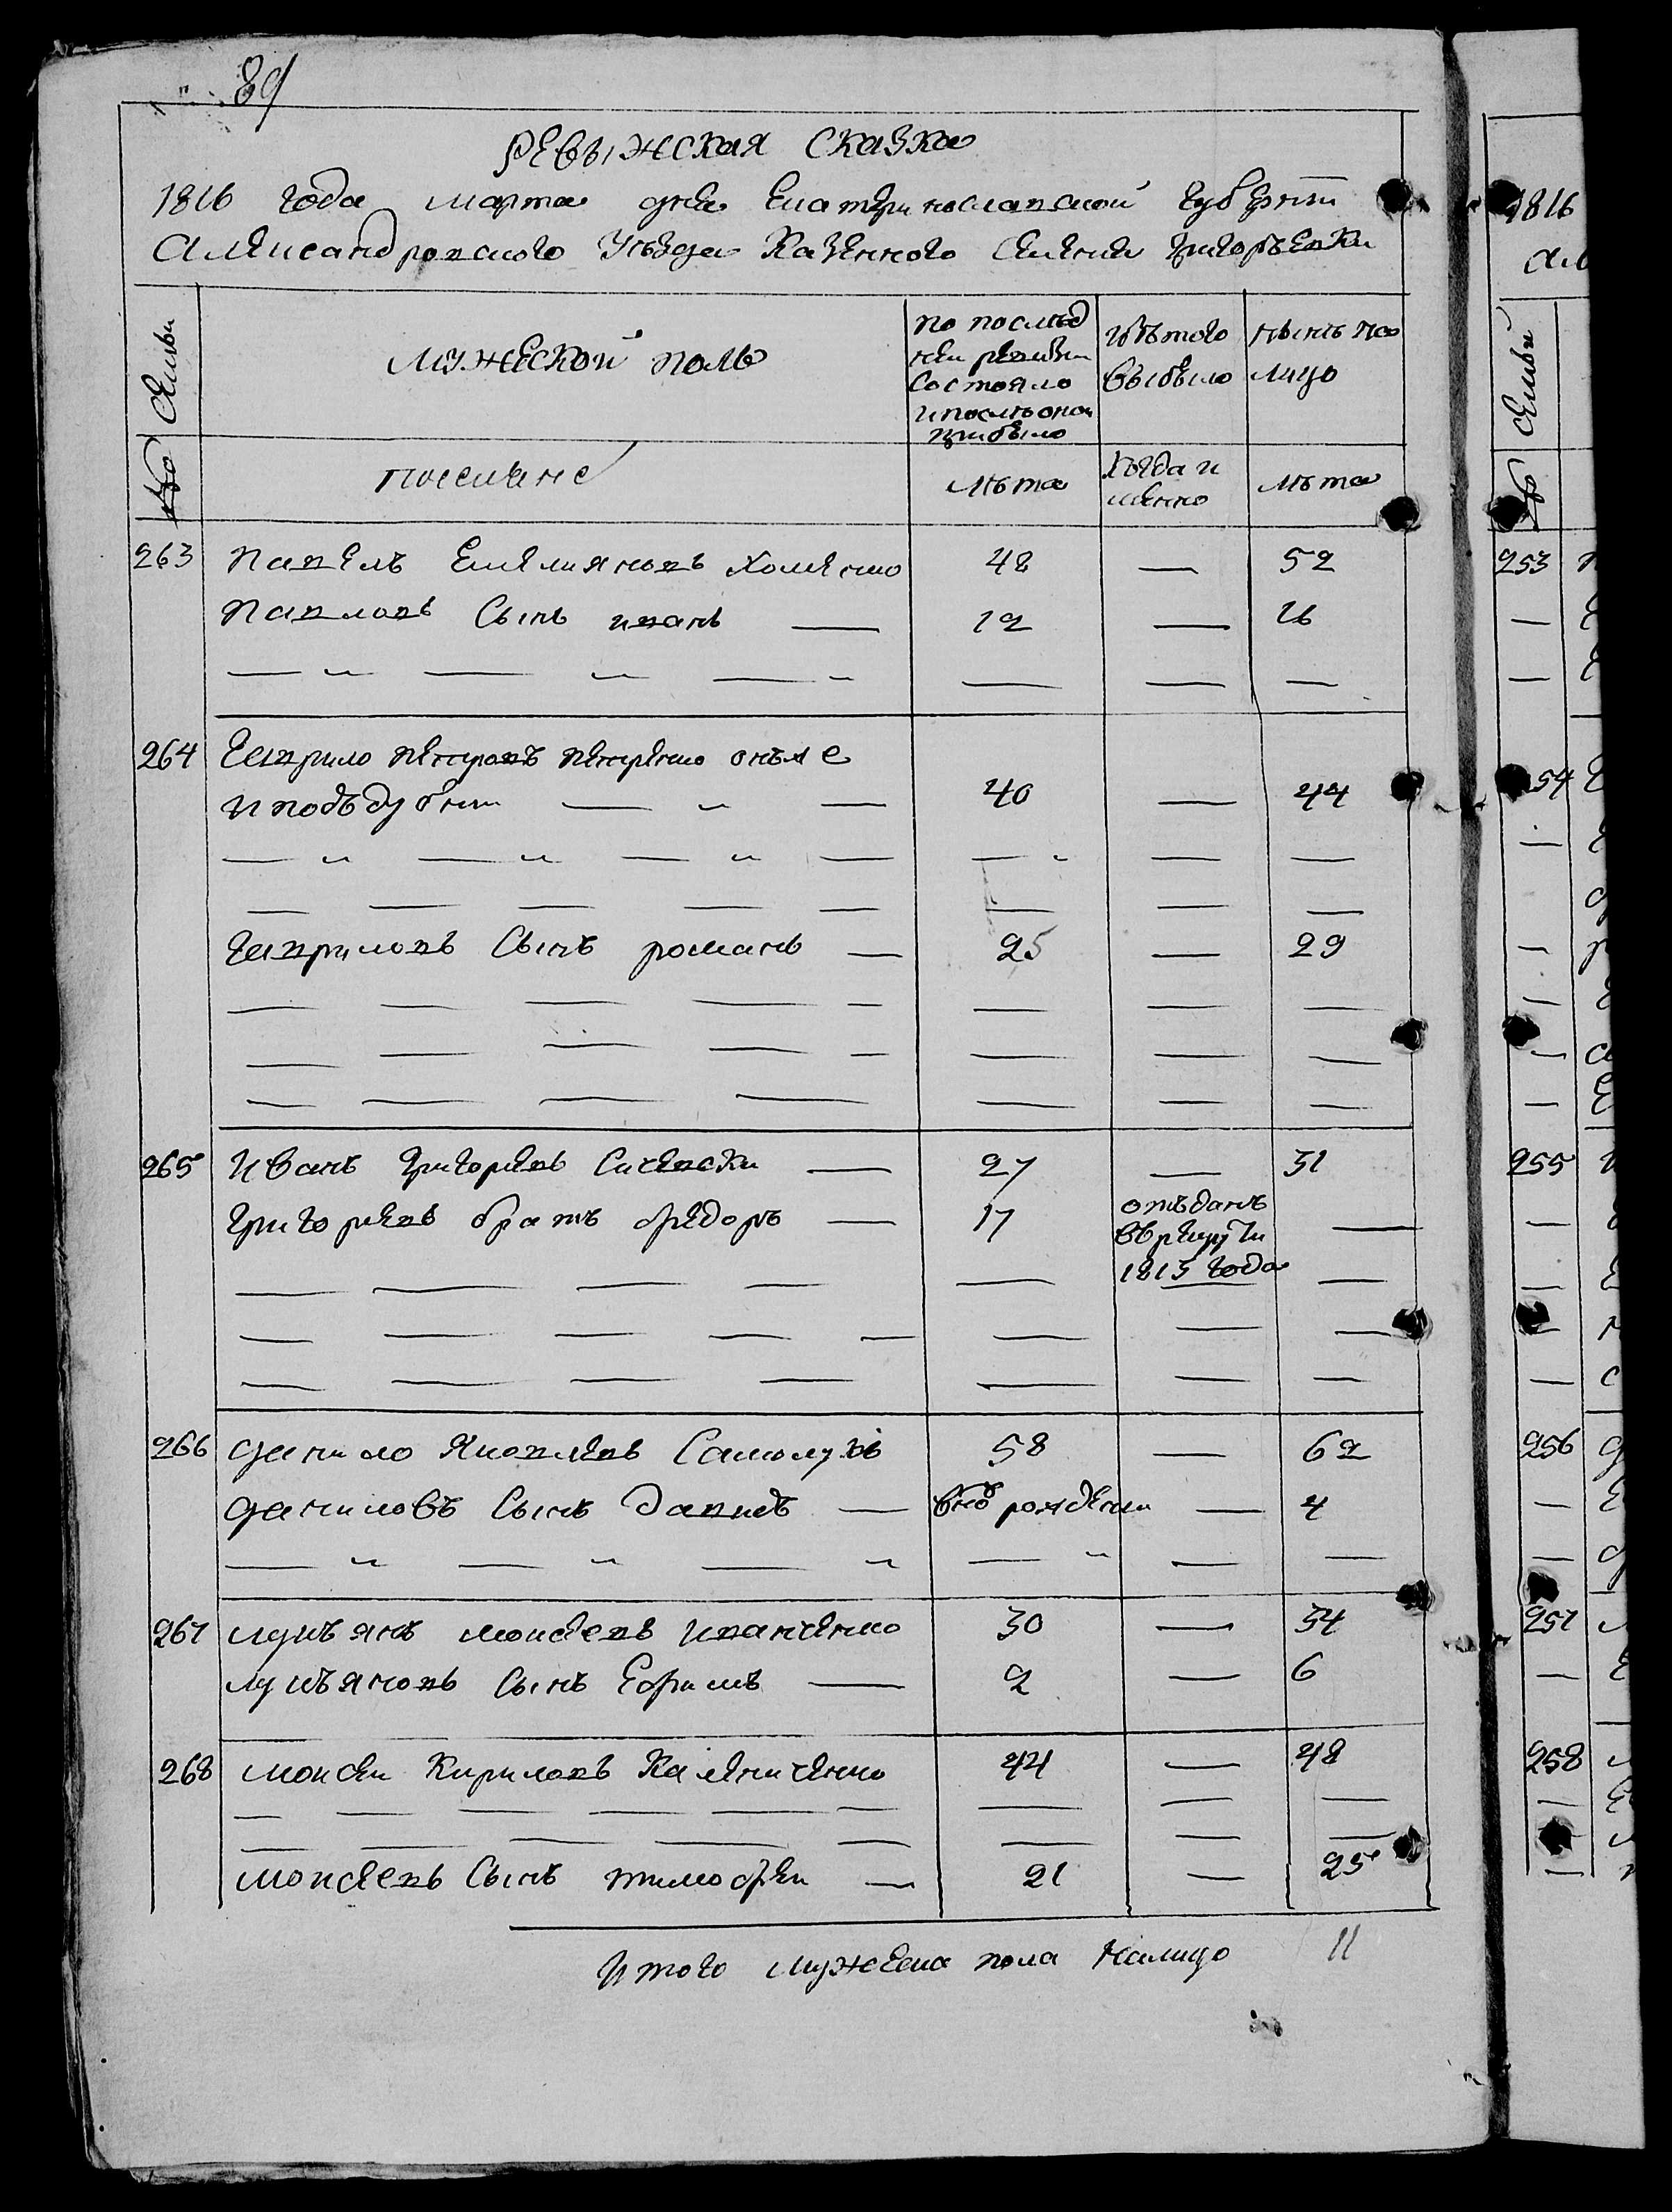 89
Ревыжская сказка
1816 года марта дня Екатеринославской губернии
Александровского Уезда Казенного Селения Григорьевки
Семьи
№
мужеской полъ
по послѣд
ней ревизи
состояло
и послѣ оной
прибыло
изъ того
выбыло
нынѣ на
лицо
поселяне
лѣта
когда и
менно
лѣта
263 Павелъ Емелияновъ Хоменко 48 — 52
Павловъ Сынъ иванъ — 12 — 16
264 Гаврило петровъ петренко онъже
и подъдубни — 40 — 44
Гавриловъ Сынъ романъ — 25 — 29
265 Иванъ григориевъ Сичевски — 27 — 31
григориевъ братъ федоръ — 17 отъданъ —
въ рекруты
1813 года
266 данило Яковлевъ Самолу 58 — 62
даниловъ Сынъ давидъ — рождени — 4
267 лукъянъ моисеевъ иванченко 30 — 34
лукъяновъ Сынъ Ефимъ — 2 — 6
268 моисеи Кириловъ Калениченко 44 — 48
моисеевъ Сынъ тимофеи — 21 — 25
Итого мужеска пола налицо 11
1816
Ал
Семьи
№
253
254
255
256
257
258